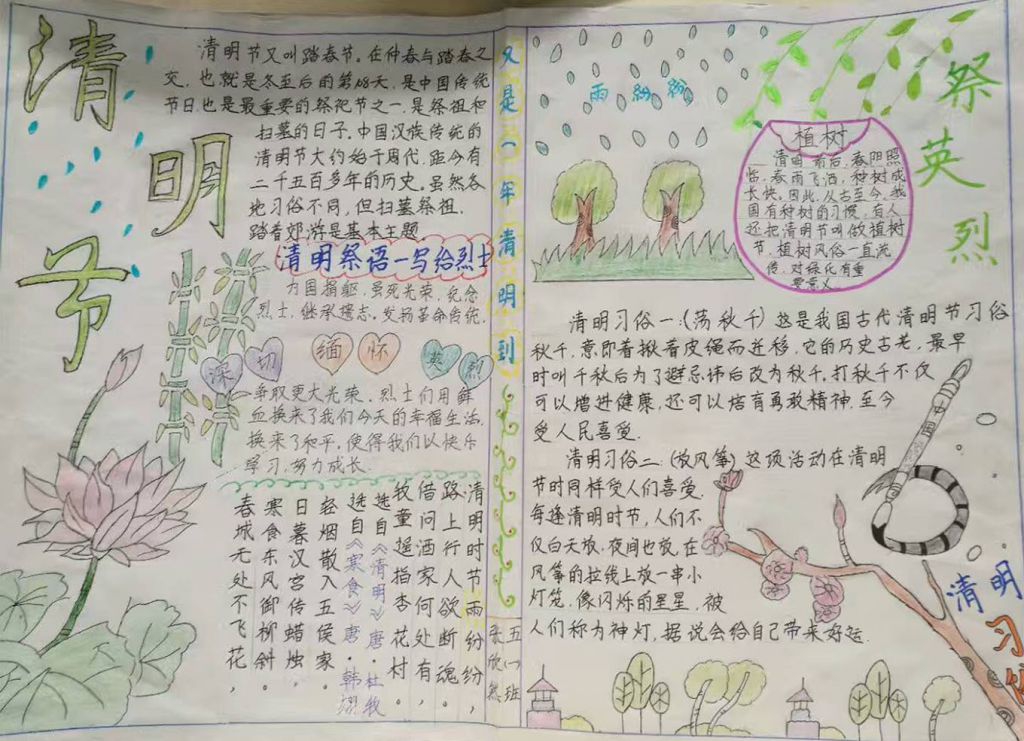 清明节
清明节又叫踏春节。在仲春与踏春之
交,也就是冬至后的第108天,是中国传统
节日也是最重要的祭祀节之一,是祭祖和
扫墓的日子,中国汉族传统的
清明节大约始于周代,距今有
二千五百多年的历史。虽然各
地习俗不同,但扫墓祭祖,
踏青郊游是基本主题
清明祭语一写给烈士
为国捐躯,虽死光荣,纪念
烈士,继承遗志,发扬革命传统.
深切 缅怀 英烈
争取更大光荣,烈士们用鲜
血换来了我们今天的幸福生活.
换来了和平,使得我们以快乐
学习,努力成长.
清明时节雨纷纷,
路上行人欲断魂。
借问酒家何处有,
牧童遥指杏花村。
选自《清明》唐·杜牧
选自《寒食》唐·韩翃
轻烟散入五侯家.
日暮汉宫传蜡烛,
寒食东风御柳斜。
春城无处不飞花,
又是一年清明到
五(一)班
张欣然
雨纷纷
植树
清明前后,春阳照
临,春雨飞洒,种树成
长快。因此,从古至今,我
国有种树的习惯,有人
还把清明节叫做植树
节,植树风俗一直流
传,对绿化有重
要意义.
祭英烈
清明习俗一:(荡秋千)这是我国古代清明节习俗
秋千,意即着揪着皮绳而迁移.它的历史古老,最早
时叫千秋后为了避忌讳后改为秋千,打秋千不仅
可以增进健康,还可以培育勇敢精神.至今
受人民喜爱.
清明习俗二:(放风筝)这项活动在清明
节时同样受人们喜爱.
每逢清明时节,人们不
仅白天放,夜间也放,在
风筝的拉线上放一串小
灯笼,像闪烁的星星,被
人们称为神灯,据说会给自己带来好运.
中国
清明
习俗